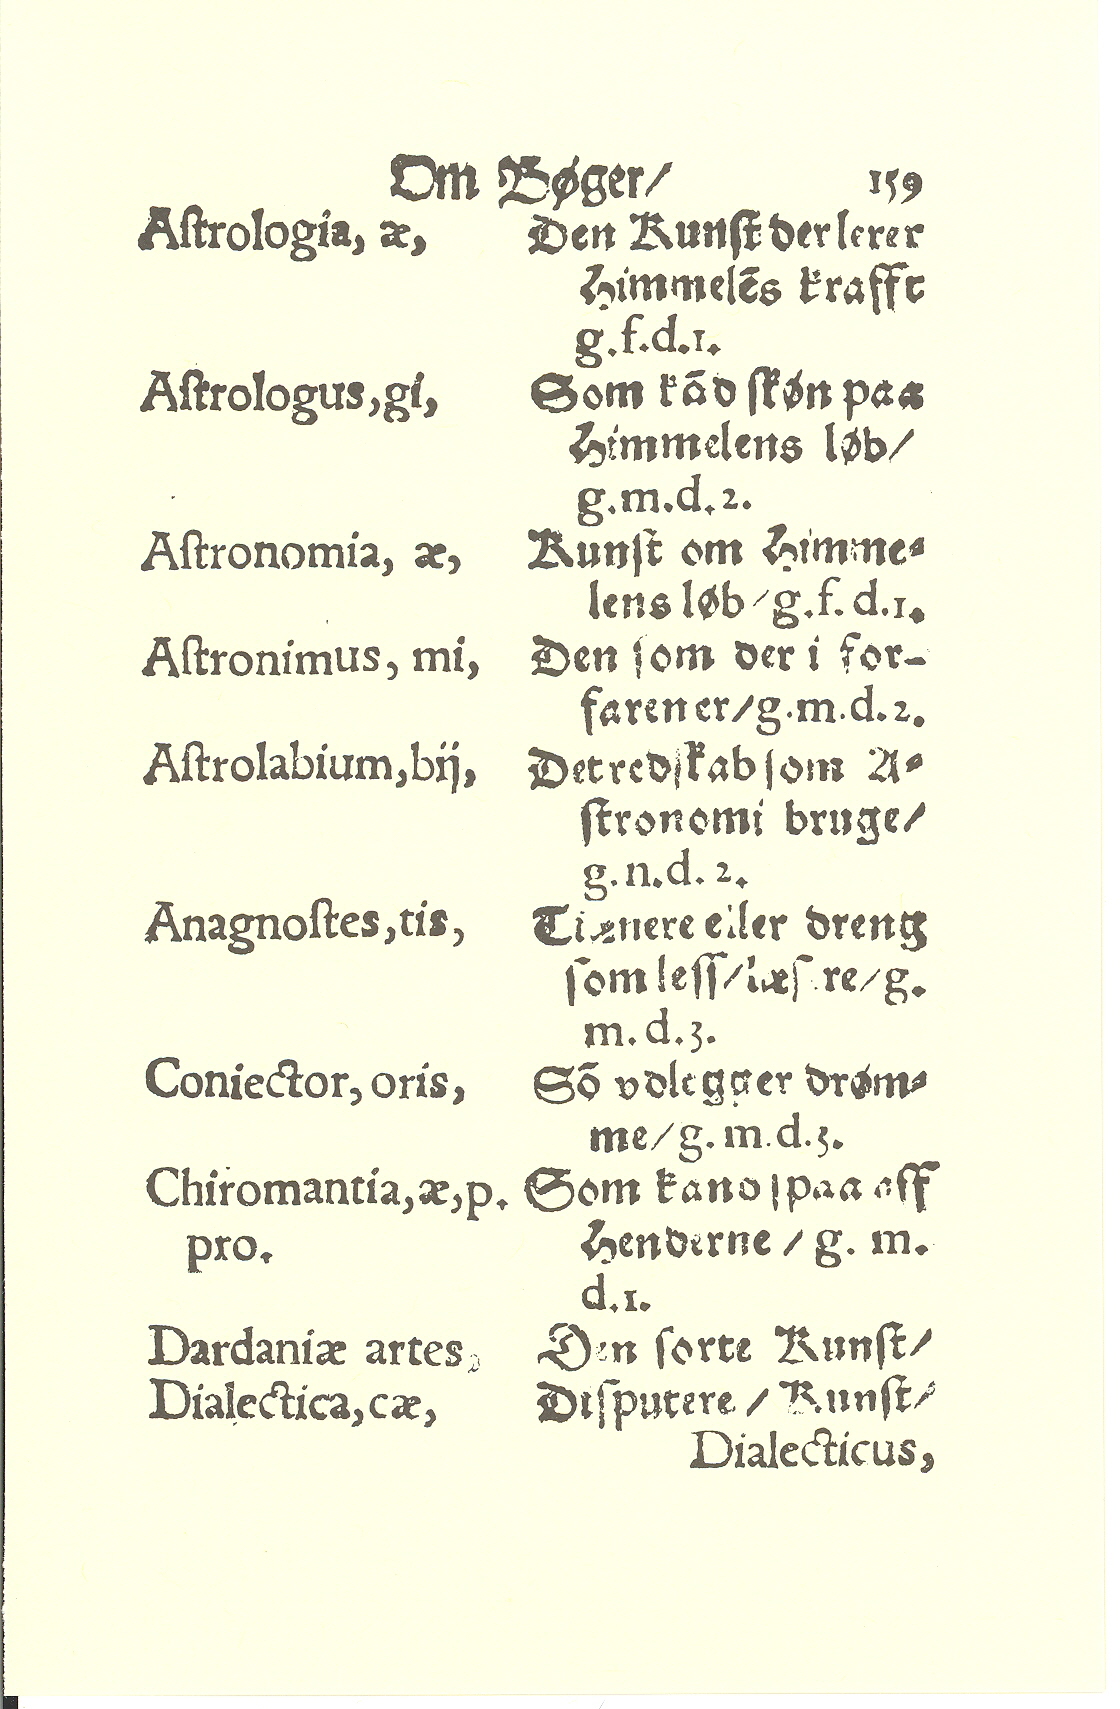 Om Bøger/ 159
Aſtrologia, æ, Den Kunſt der lerer
Himmelēs krafft
g.f.d.1.
Aſtrologus, gi, Som kād ſkøn paa
Himmelens løb/
g.m.d.2.
Aſtronomia, æ, Kunſt om Himme⸗
lens løb/g.f.d.1.
Aſtronimus, mi, Den ſom der i for-
farener/g.m.d.2.
Aſtrolabium, bij, Det redſkab ſom A⸗
ſtronomi bruge/
g.n.d.2.
Anagnoſtes, tis, Tiænere eller dreng
ſom leſſ/ læſere/g.
m.d.3.
Coniector, oris, Sō vdlegger drøm⸗
me/g.m.d.3.
Chiromantia, æ, p. Som kand ſpaa aff
pro. Henderne/g. m.
d.1.
Dardaniæ artes, Den ſorte Kunſt/
Dialectica, cæ, Diſputere/Kunſt/
Dialecticus,